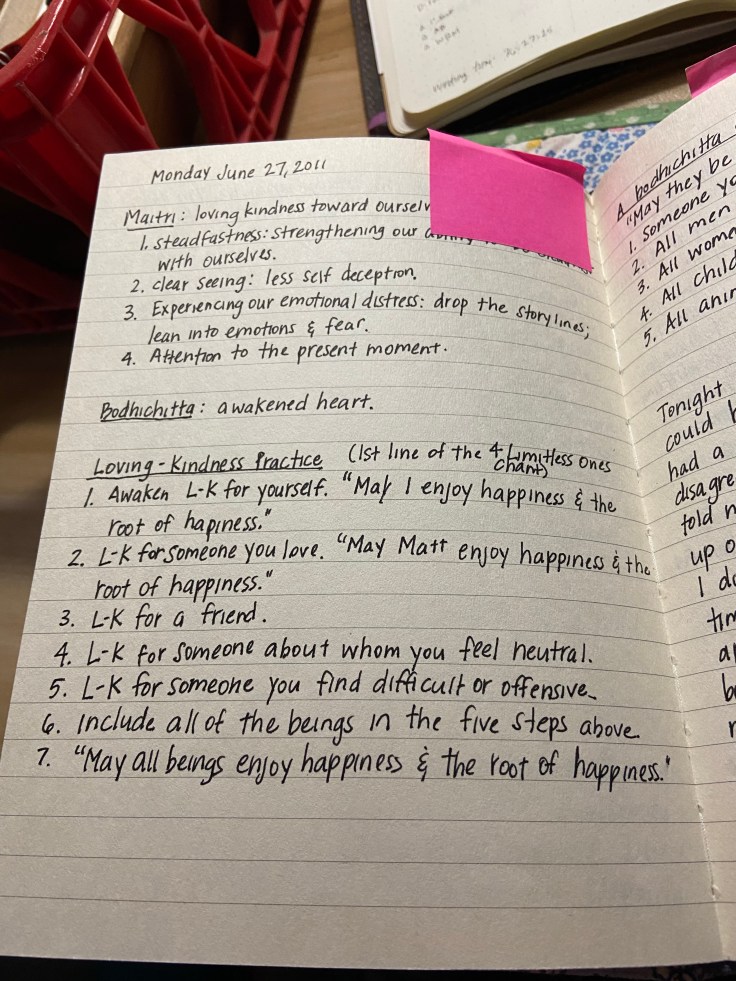 Monday June 27, 2011
Maitri: loving kindness toward
1. steadfastness: strengthening our
with ourselves.
2. clear seeing: less self deception.
3. Experiencing our emotional distress: drop the storylines;
lean into emotions & fear.
4. Attention to the present moment.
Bodhichitta: awakened heart.
Loving-Kindness Practice (1st line of the 4 Limitless ones
chant)
1. Awaken L-K for yourself. "May I enjoy happiness & the
root of hapiness."
2. L-K for someone you love. "May Matt enjoy happiness & the
root of happiness."
3. L-K for a friend.
4. L-K for someone about whom you feel neutral.
5. L-K for someone you find difficult or offensive.
6. Include all of the beings in the five steps above.
7. "May all beings enjoy happiness & the root of happiness."
A bodhichitta
"May they be
1. Someone
2. All men
3. All
4. All
5. All
Tonight
could
had a
told
up
I